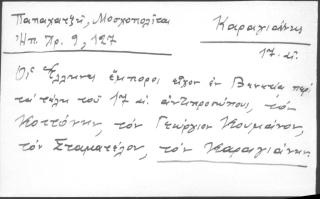 Παπαχατζῆ, Μοσχοπολῖται
Καραγιάννης
Ἠπ. Χρ. 9, 127
17. αἰ.
Οἱ Ἕλληνες ἔμποροι εἶχον ἐν Βενετίᾳ περὶ
τὰ τέλη τοῦ 17 αἰ. ἀντιπροσώπους, τὸν
Κοττόνην, τὸν Γεώργιον Κουμᾶνον,
τὸν Σταματέλον, τὸν Καραγιάννην.